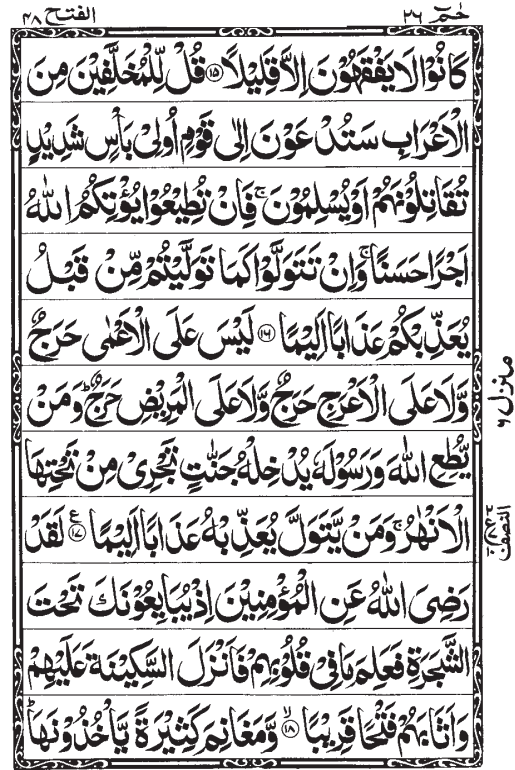 حٰمٓ ٢٦
الفتح ٤٨
كَانُوْا لَا يَفْقَهُوْنَ اِلَّا قَلِيْلًا ﴿۱۵﴾ قُلْ لِّلْمُخَلَّفِيْنَ مِنَ
الْاَعْرَابِ سَتُدْعَوْنَ اِلٰى قَوْمٍ اُولِيْ بَاْسٍ شَدِيْدٍ
تُقَاتِلُوْنَهُمْ اَوْ يُسْلِمُوْنَ ۚ فَاِنْ تُطِيْعُوْا يُؤْتِكُمُ اللّٰهُ
اَجْرًا حَسَنًا ۚ وَاِنْ تَتَوَلَّوْا كَمَا تَوَلَّيْتُمْ مِّنْ قَبْلُ
يُعَذِّبْكُمْ عَذَابًا اَلِيْمًا ﴿۱۶﴾ لَيْسَ عَلَى الْاَعْمٰى حَرَجٌ
وَّلَا عَلَى الْاَعْرَجِ حَرَجٌ وَّلَا عَلَى الْمَرِيْضِ حَرَجٌ ؕ وَمَنْ
يُّطِعِ اللّٰهَ وَرَسُوْلَهٗ يُدْخِلْهُ جَنّٰتٍ تَجْرِيْ مِنْ تَحْتِهَا
الْاَنْهٰرُ ۚ وَمَنْ يَّتَوَلَّ يُعَذِّبْهُ عَذَابًا اَلِيْمًا ﴿۱۷﴾ ع لَقَدْ
رَضِيَ اللّٰهُ عَنِ الْمُؤْمِنِيْنَ اِذْ يُبَايِعُوْنَكَ تَحْتَ
الشَّجَرَةِ فَعَلِمَ مَا فِيْ قُلُوْبِهِمْ فَاَنْزَلَ السَّكِيْنَةَ عَلَيْهِمْ
وَاَثَابَهُمْ فَتْحًا قَرِيْبًا ﴿۱۸﴾ ۙ وَّمَغَانِمَ كَثِيْرَةً يَّاْخُذُوْنَهَا ؕ
منزل ۶
النصف